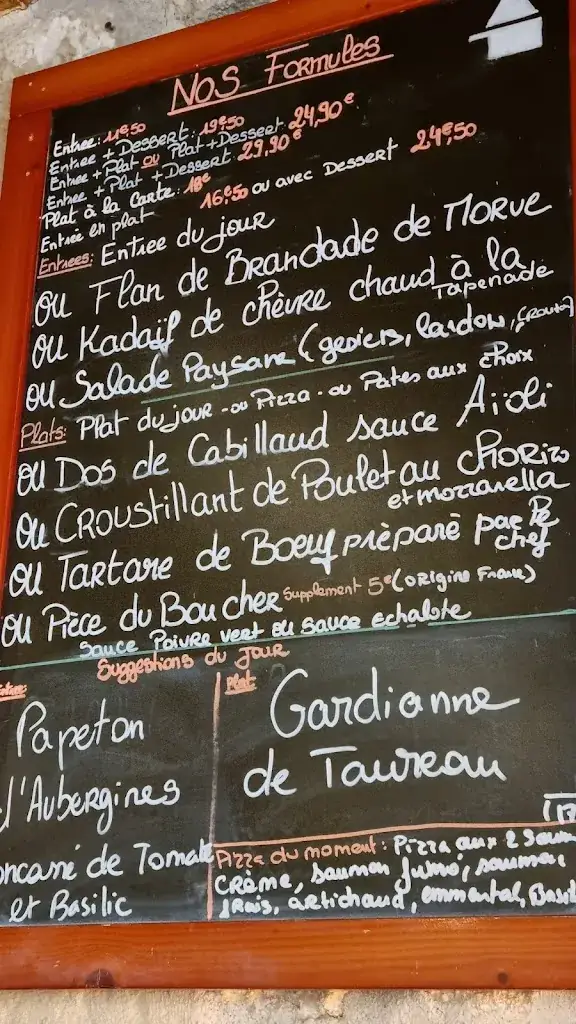 Nos Formules
Entree: 11€50
Entree + Dessert: 19€50
Entree + Plat ou Plat + Dessert 24,90€
Entree + Plat + Dessert 29,90€
Plat à la Carte: 18€
Entrée en plat 16€50 ou avec Dessert 24€50
Entrees: Entree du jour
ou Flan de Brandade de Morue
ou Kadaïf de chèvre chaud à la
Tapenade
ou Salade Paysane (gesiers, lardon,
Plats: Plat du jour - ou Pizza - ou Pates aux choix
ou Dos de Cabillaud sauce Aïoli
ou Croustillant de Poulet au Chorizo
et mozzarella
ou Tartare de Boeuf prèparè par le
chef
ou Pièce du Boucher Supplement 5€ (origine France)
Sauce Poivre vert ou sauce echalote
Suggestions du Jour
Papeton
d'Aubergines
de Tomate
et Basilic
Plat
Gardianne
de Taureau
17
Pizza du moment: Pizza aux 2 Saum
Crème, saumon fumé, saumon
frais, artichaud, emmental, Basil